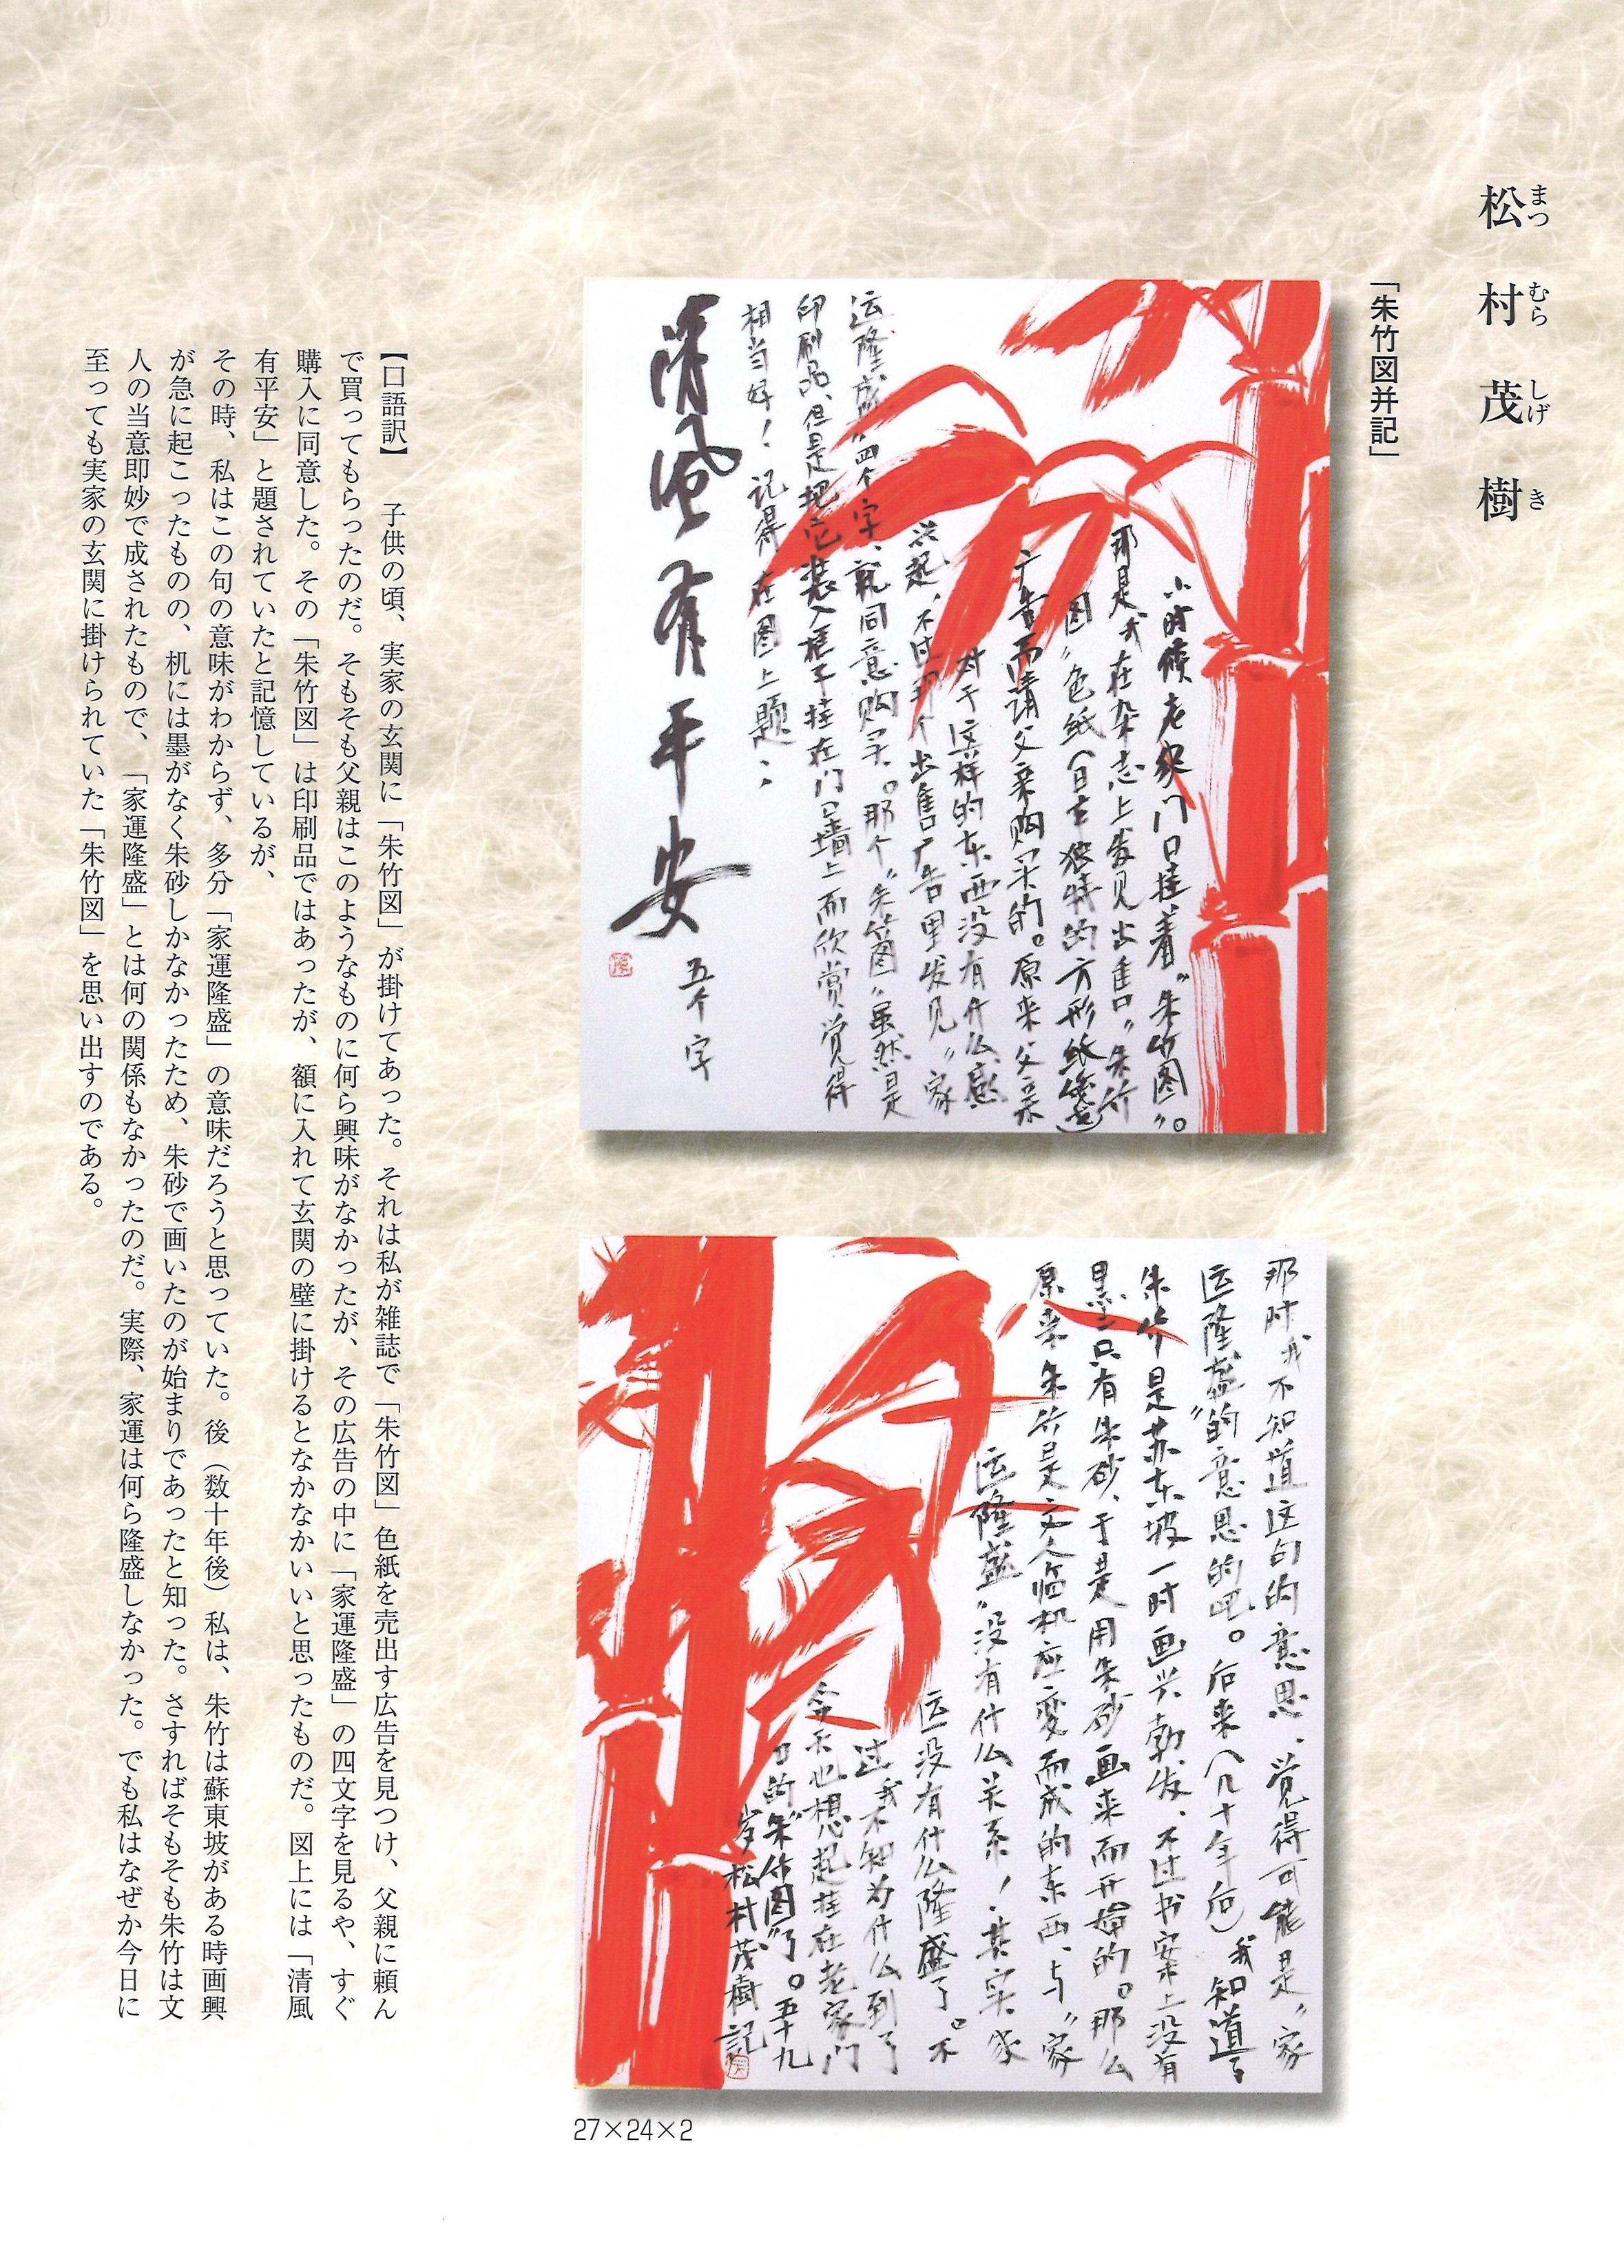 松村茂樹
まつ むら しげ き
「朱竹図并記」
小时候老家门口挂着“朱竹图”。
那是我在杂志上发见出售“朱竹
图”色纸（日本独特的方形纸笺）
广告而请父亲购买的。原来父亲
对于这样的东西没有什么感
兴起，不过那个出售广告里发见“家
运隆盛”四个字、就同意购买。那个“朱竹图”虽然是
印刷品、但是把它装入框子挂在门口墙上而欣赏觉得
相当好！记得在图上题：
清风有平安
五个字
那时我不知道这句的意思、觉得可能是“家
运隆盛”的意思的吧。后来（几十年后）我知道了
朱竹是苏东坡一时画兴勃发、不过书案上没有
黑、只有朱砂、于是用朱砂画来而开始的。那么
原来朱竹是文人临机应变而成的东西、与“家
运隆盛”没有什么关系！其实家
运没有什么隆盛了。不
过我不知为什么到了
今天也想起挂在老家门
口的“朱竹图”了。五十九
岁松村茂樹記
27×24×2
【口語訳】　子供の頃、実家の玄関に「朱竹図」が掛けてあった。それは私が雑誌で「朱竹図」色紙を売出す広告を見つけ、父親に頼ん
で買ってもらったのだ。そもそも父親はこのようなものに何ら興味がなかったが、その広告の中に「家運隆盛」の四文字を見るや、すぐ
購入に同意した。その「朱竹図」は印刷品ではあったが、額に入れて玄関の壁に掛けるとなかなかいいと思ったものだ。図上には「清風
有平安」と題されていたと記憶しているが、
その時、私はこの句の意味がわからず、多分「家運隆盛」の意味だろうと思っていた。後（数十年後）私は、朱竹は蘇東坡がある時画興
が急に起こったものの、机には墨がなく朱砂しかなかったため、朱砂で画いたのが始まりであったと知った。さすればそもそも朱竹は文
人の当意即妙で成されたもので、「家運隆盛」とは何の関係もなかったのだ。実際、家運は何ら隆盛しなかった。でも私はなぜか今日に
至っても実家の玄関に掛けられていた「朱竹図」を思い出すのである。